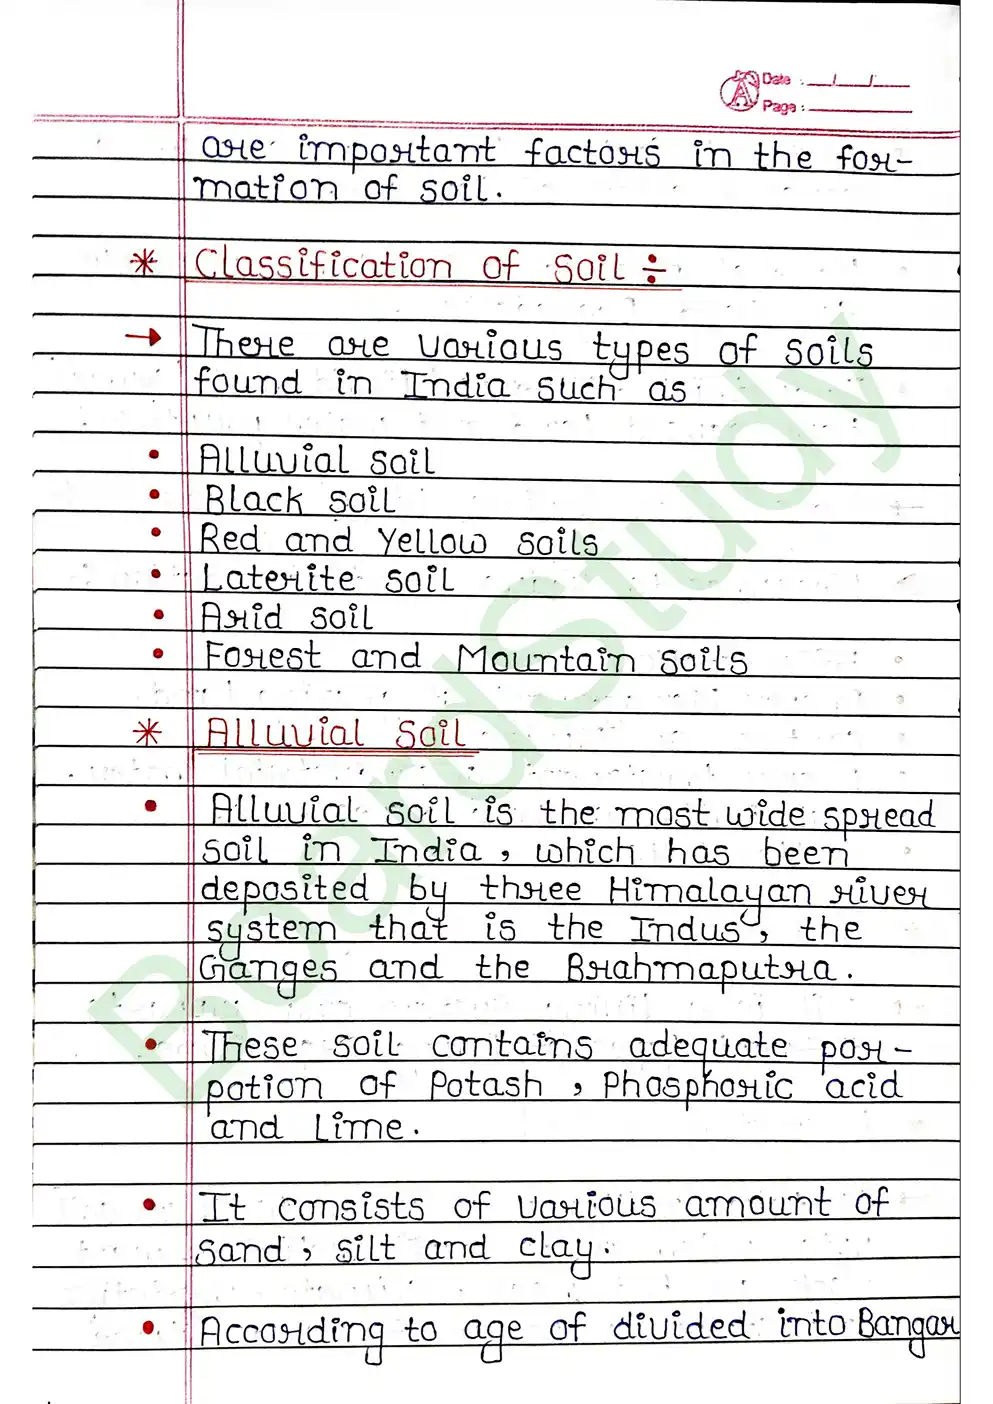 Date : __/__/__
Page :
are important factors in the for-
mation of soil.
* Classification of soil ÷
→ There are various types of soils
found in India such as
• Alluvial soil
• Black soil
• Red and Yellow soils
• Laterite soil
• Arid soil
• Forest and Mountain soils
* Alluvial Soil
• Alluvial soil is the most wide spread
soil in India, which has been
deposited by three Himalayan river
system that is the Indus, the
Ganges and the Brahmaputra.
• These soil contains adequate por-
potion of Potash, Phosphoric acid
and Lime.
• It consists of various amount of
sand, silt and clay.
• According to age of divided into Bangar
BoardStudy